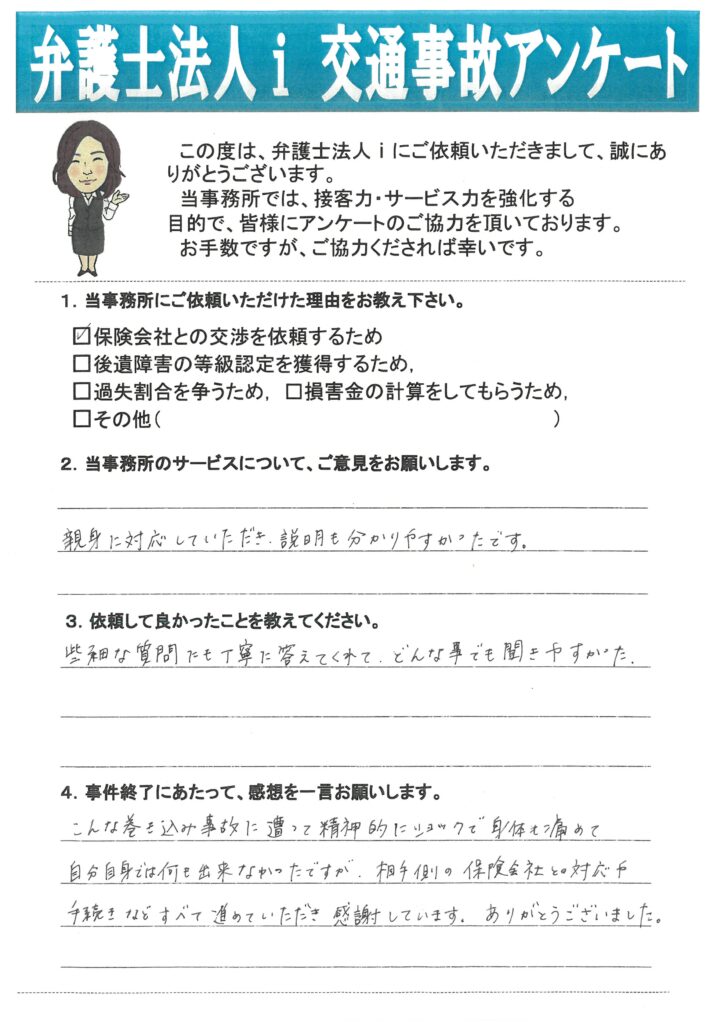 弁護士法人i 交通事故アンケート
この度は、弁護士法人iにご依頼いただきまして、誠にあ
りがとうございます。
当事務所では、接客力・サービス力を強化する
目的で、皆様にアンケートのご協力を頂いております。
お手数ですが、ご協力くだされば幸いです。
1. 当事務所にご依頼いただけた理由をお教え下さい。
☑保険会社との交渉を依頼するため
□後遺障害の等級認定を獲得するため,
□過失割合を争うため, □損害金の計算をしてもらうため,
□その他( )
2. 当事務所のサービスについて、ご意見をお願いします。
親身に対応していただき、説明も分かりやすかったです。
3. 依頼して良かったことを教えてください。
些細な質問にも丁寧に答えてくれて、どんな事でも聞きやすかった.
4. 事件終了にあたって、感想を一言お願いします。
こんな巻き込み事故に遭って精神的にショックで身体も痛めて
自分自身では何も出来なかったですが、相手側の保険会社との対応や
手続きなどすべて進めていただき感謝しています。ありがとうございました。